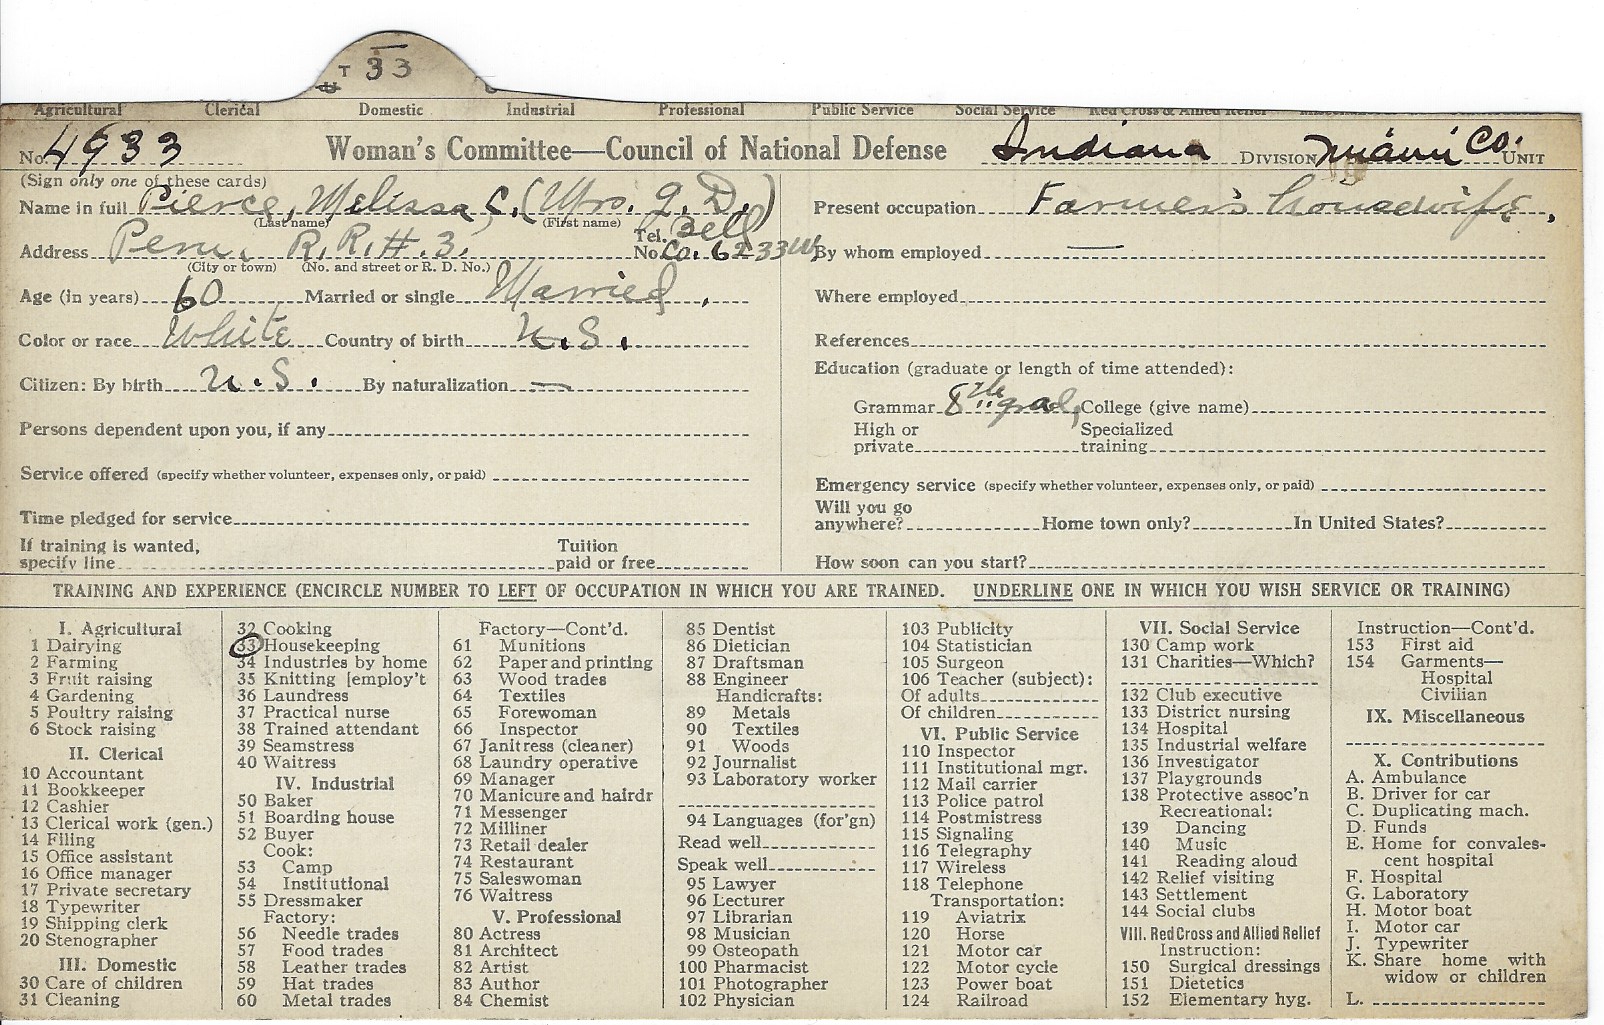 T 33
Agricultural Clerical Domestic Industrial Professional Public Service Social Service Red Cross & Allied Relief
No. 4933 Woman's Committee—Council of National Defense Indiana DIVISION Miami Co. UNIT
(Sign only one of these cards)
Name in full Pierce, Melissa C. (Mrs. J. D.)
(Last name) (First name)
Address Peru, R. R. # 3. Tel. No. Bell Co. 6233W
(City or town) (No. and street or R. D. No.)
Age (in years) 60 Married or single Married.
Color or race White Country of birth U.S.
Citizen: By birth U.S. By naturalization —
Persons dependent upon you, if any
Service offered (specify whether volunteer, expenses only, or paid)
Time pledged for service
If training is wanted, specify line Tuition paid or free
Present occupation Farmer's housewife.
By whom employed —
Where employed
References
Education (graduate or length of time attended):
Grammar 8th grad, College (give name)
High or private Specialized training
Emergency service (specify whether volunteer, expenses only, or paid)
Will you go anywhere? Home town only? In United States?
How soon can you start?
TRAINING AND EXPERIENCE (ENCIRCLE NUMBER TO LEFT OF OCCUPATION IN WHICH YOU ARE TRAINED. UNDERLINE ONE IN WHICH YOU WISH SERVICE OR TRAINING)
I. Agricultural
1 Dairying
2 Farming
3 Fruit raising
4 Gardening
5 Poultry raising
6 Stock raising
II. Clerical
10 Accountant
11 Bookkeeper
12 Cashier
13 Clerical work (gen.)
14 Filing
15 Office assistant
16 Office manager
17 Private secretary
18 Typewriter
19 Shipping clerk
20 Stenographer
III. Domestic
30 Care of children
31 Cleaning
32 Cooking
33 Housekeeping
34 Industries by home
35 Knitting [employ't
36 Laundress
37 Practical nurse
38 Trained attendant
39 Seamstress
40 Waitress
IV. Industrial
50 Baker
51 Boarding house
52 Buyer
Cook:
53 Camp
54 Institutional
55 Dressmaker
Factory:
56 Needle trades
57 Food trades
58 Leather trades
59 Hat trades
60 Metal trades
Factory—Cont'd.
61 Munitions
62 Paper and printing
63 Wood trades
64 Textiles
65 Forewoman
66 Inspector
67 Janitress (cleaner)
68 Laundry operative
69 Manager
70 Manicure and hairdr
71 Messenger
72 Milliner
73 Retail dealer
74 Restaurant
75 Saleswoman
76 Waitress
V. Professional
80 Actress
81 Architect
82 Artist
83 Author
84 Chemist
85 Dentist
86 Dietician
87 Draftsman
88 Engineer
Handicrafts:
89 Metals
90 Textiles
91 Woods
92 Journalist
93 Laboratory worker
94 Languages (for'gn)
Read well
Speak well
95 Lawyer
96 Lecturer
97 Librarian
98 Musician
99 Osteopath
100 Pharmacist
101 Photographer
102 Physician
103 Publicity
104 Statistician
105 Surgeon
106 Teacher (subject):
Of adults
Of children
VI. Public Service
110 Inspector
111 Institutional mgr.
112 Mail carrier
113 Police patrol
114 Postmistress
115 Signaling
116 Telegraphy
117 Wireless
118 Telephone
Transportation:
119 Aviatrix
120 Horse
121 Motor car
122 Motor cycle
123 Power boat
124 Railroad
VII. Social Service
130 Camp work
131 Charities—Which?
132 Club executive
133 District nursing
134 Hospital
135 Industrial welfare
136 Investigator
137 Playgrounds
138 Protective assoc'n
Recreational:
139 Dancing
140 Music
141 Reading aloud
142 Relief visiting
143 Settlement
144 Social clubs
VIII. Red Cross and Allied Relief
Instruction:
150 Surgical dressings
151 Dietetics
152 Elementary hyg.
Instruction—Cont'd.
153 First aid
154 Garments—
Hospital
Civilian
IX. Miscellaneous
X. Contributions
A. Ambulance
B. Driver for car
C. Duplicating mach.
D. Funds
E. Home for convales-
cent hospital
F. Hospital
G. Laboratory
H. Motor boat
I. Motor car
J. Typewriter
K. Share home with
widow or children
L.